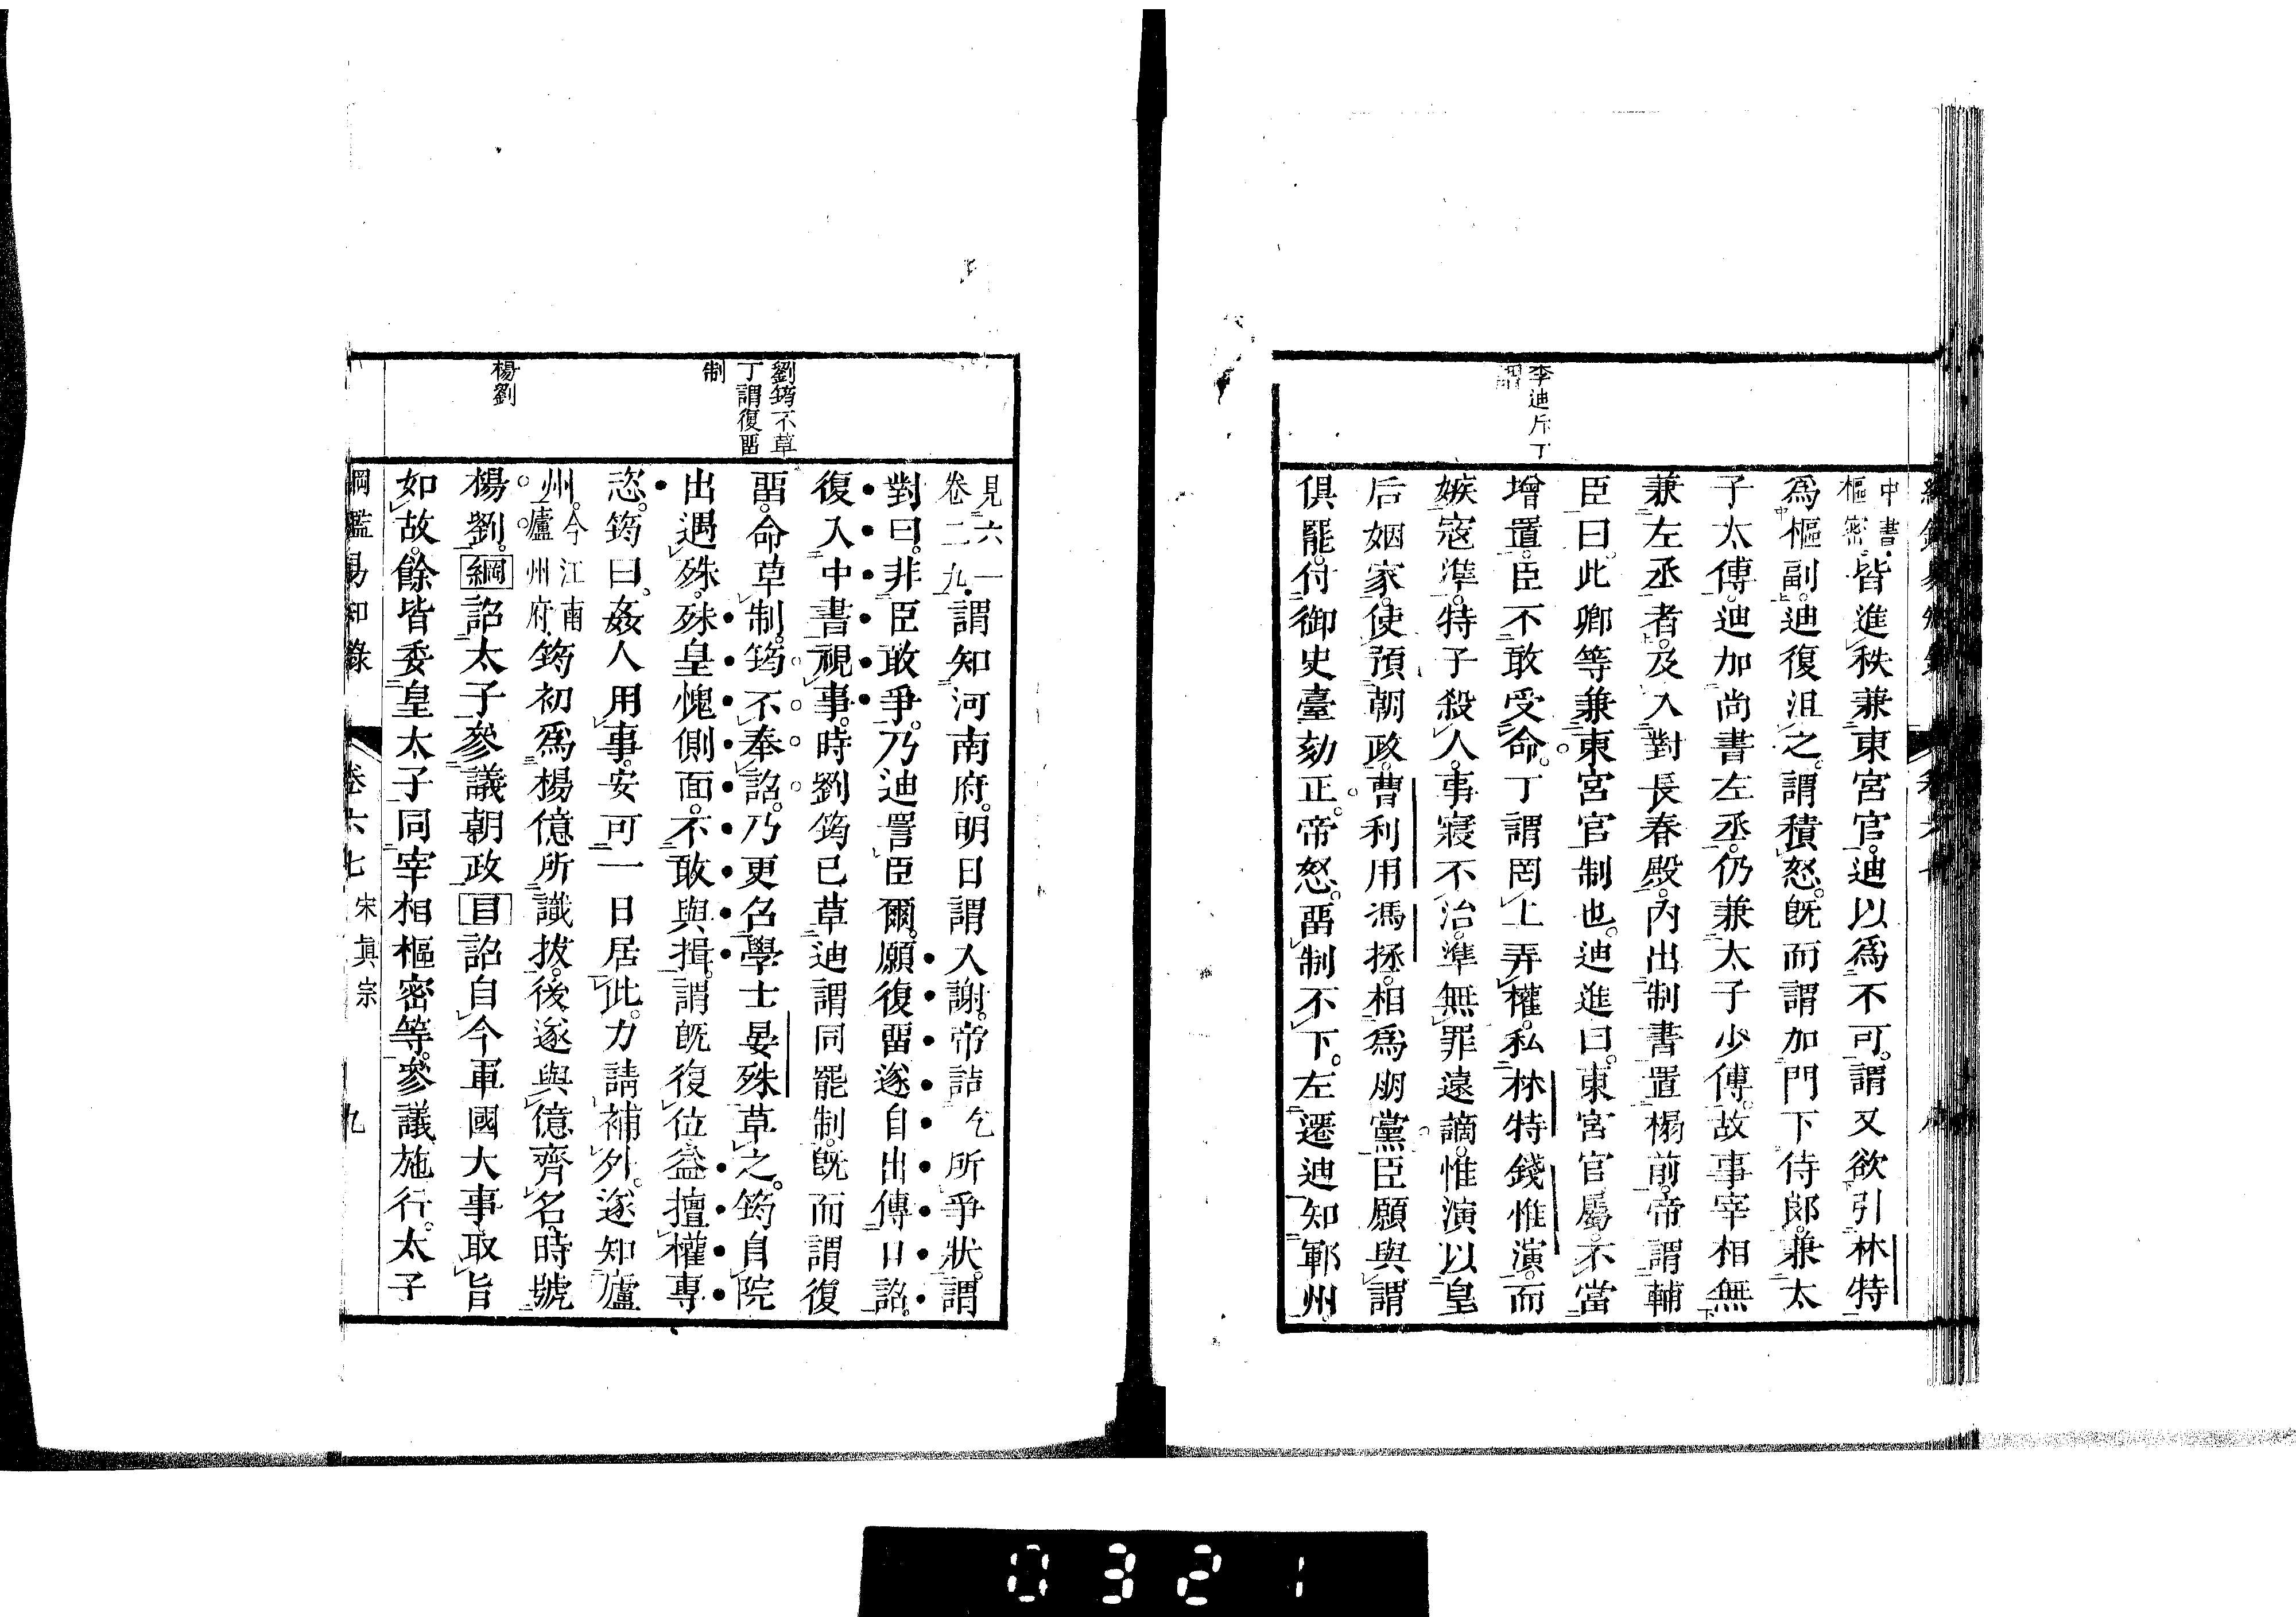 李迪斥丁
謂
中書
樞密皆進秩兼東宮官。迪以爲不可。謂又欲引林特
爲樞副。迪復沮之。謂積怒。既而謂加門下侍郎。兼太
子太傅。迪加尚書左丞。仍兼太子少傅。故事宰相無
兼左丞者。及入對長春殿。內出制書置榻前。帝謂輔
臣曰。此卿等兼東宮官制也。迪進曰。東宮官屬。不當
增置。臣不敢受命。丁謂罔上弄權。私林特錢惟演。而
嫉寇準。特子殺人。事寢不治。準無罪遠謫。惟演以皇
后姻家。使預朝政。曹利用馮拯。相爲朋黨。臣願與謂
俱罷。付御史臺劾正。帝怒。畱制不下。左遷迪知鄆州。
劉筠不草
丁謂復畱
制
楊劉
見六一
卷二九謂知河南府。明日謂入謝。帝詰乞所爭狀。謂
對曰。非臣敢爭。乃迪詈臣爾。願復畱遂自出傳曰詔。
復入中書視事。時劉筠已草迪謂同罷制。既而謂復
畱。命草制。筠不奉詔。乃更召學士晏殊草之。筠自院
出遇殊。殊皇愧側面。不敢與揖。謂既復位益擅權專
恣。筠曰。姦人用事。安可一日居此。力請補外。遂知廬
州。今江南
廬州府筠初爲楊億所識拔。後遂與億齊名。時號
楊劉。綱詔太子參議朝政目詔自今軍國大事取旨
如故。餘皆委皇太子同宰相樞密等。參議施行。太子
綱鑑易知錄 卷六七 宋眞宗 九